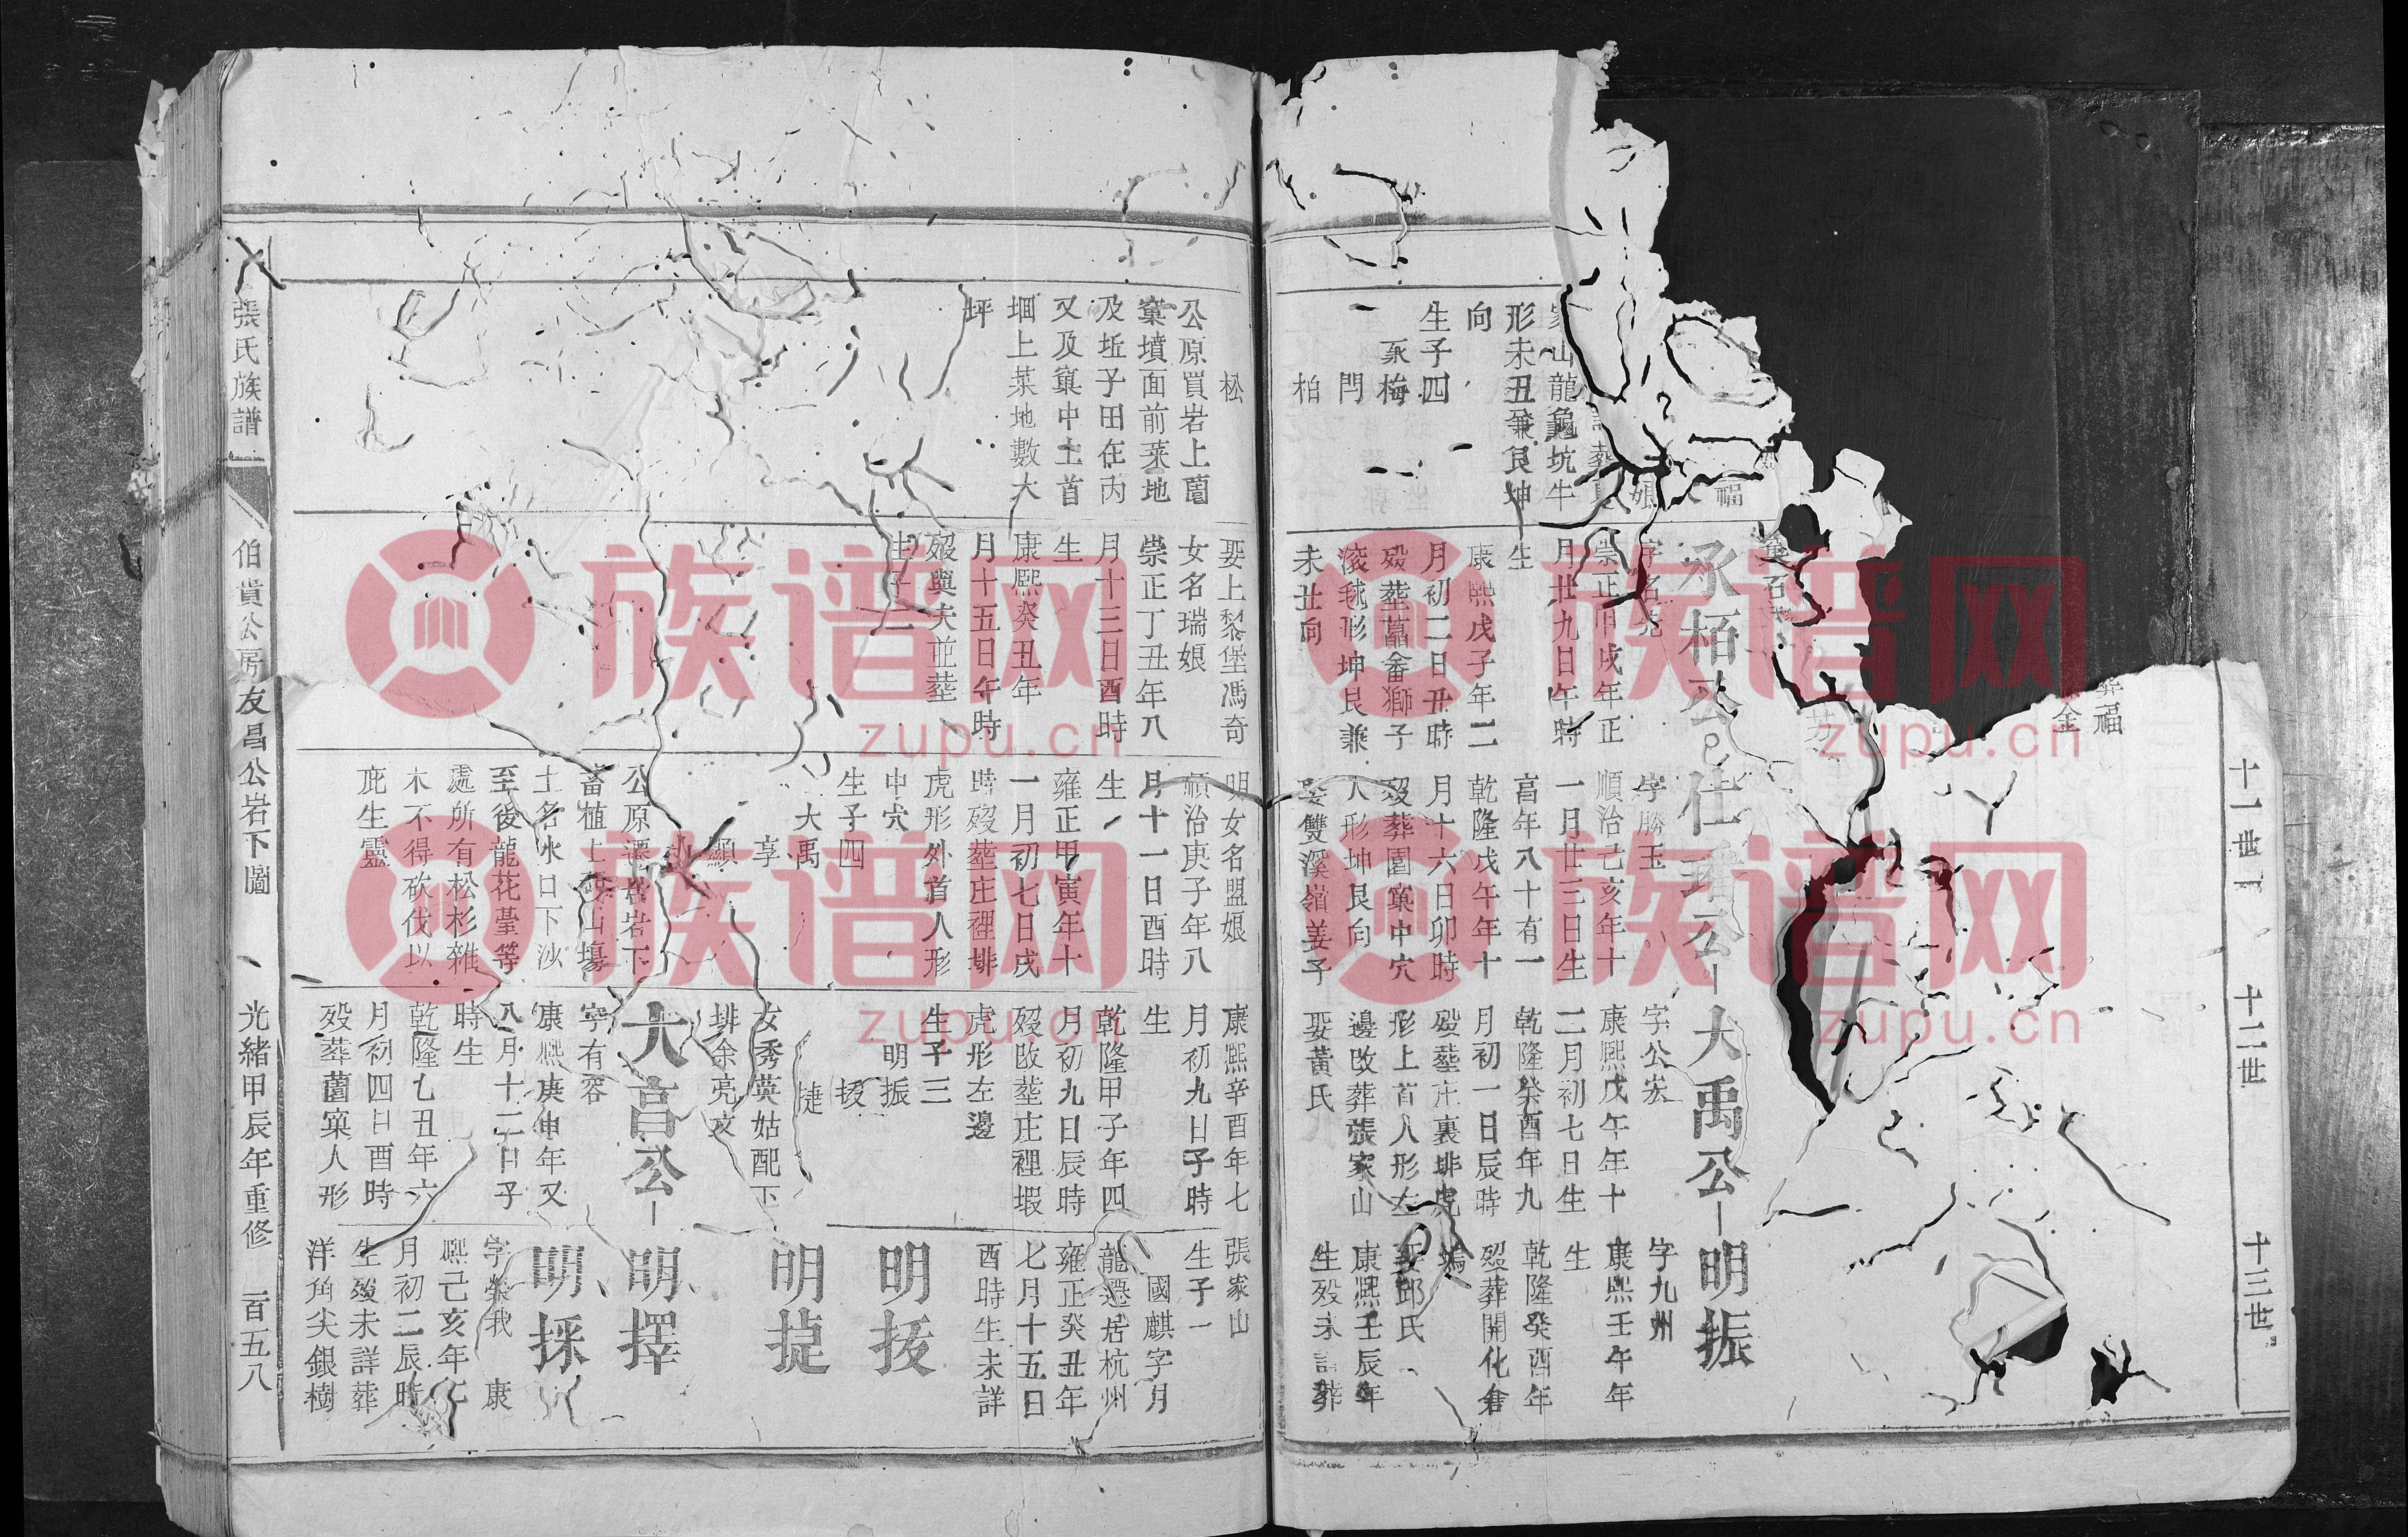 十一世
十二世
十三世
葬福
金
福
娘
家山龍龜坑牛
形未丑兼艮坤
向
生子四
承梅
門
柏
松
公原買岩上薗
窠墳面前菜地
及坵子田在丙
又及窠中土首
堌上菜地數大
坪
承栢公
崇正甲戌年正
月廿九日午時
生
康熙戊子年二
月初二日丑時
歿塟薗畲獅子
滾毬形坤艮兼
未丑向
娶上黎堡馮奇
女名瑞娘
崇正丁丑年八
月十三日酉時
生
康熙癸丑年
月十五日午時
歿與夫並塟
生子二
字勝玉
順治己亥年十
一月廿三日生
亯年八十有一
乾隆戊午年十
月十六日卯時
歿葬園窠中穴
人形坤艮向
娶雙溪嶺姜子
明女名盟娘
順治庚子年八
月十一日酉時
生
雍正甲寅年十
一月初七日戌
時歿塟庄裡排
虎形外首人形
中穴
生子四
大禹
享
顯
公原遷居岩下
畜植上
土名水口下沙
至後龍花臺等
處所有松杉雜
木不得砍伐以
庇生靈
大禹公
字公宏
康熙戊午年十
二月初七日生
乾隆癸酉年九
月初一日辰時
歿塟庄裏排虎
形上首人形左
邊改葬張家山
娶黃氏
康熙辛酉年七
月初九日子時
生
乾隆甲子年四
月初九日辰時
歿改塟庄裡塅
虎形左邊
生子三
明振
捷
女秀英姑配下
排余亮文
大亯公
字有容
康熙庚申年又
八月十二日子
時生
乾隆乙丑年六
月初四日酉時
歿葬薗窠人形
明振
字九州
康熙壬午年
生
乾隆癸酉年
歿葬開化倉
塢
娶邱氏
康熙壬辰年
生歿未詳葬
張家山
生子一
國麒字月
龍遷居杭州
雍正癸丑年
七月十五日
酉時生未詳
明㧞
明㨗
明擇
明採
字榮我 康
熙己亥年
月初二辰時
生歿未詳葬
洋角尖銀樹
張氏族譜
伯貴公房友昌公岩下圖
光緒甲辰年重修
一百五八
族谱网
zupu.cn
族谱网
zupu.cn
族谱网
zupu.cn
族谱网
zupu.cn